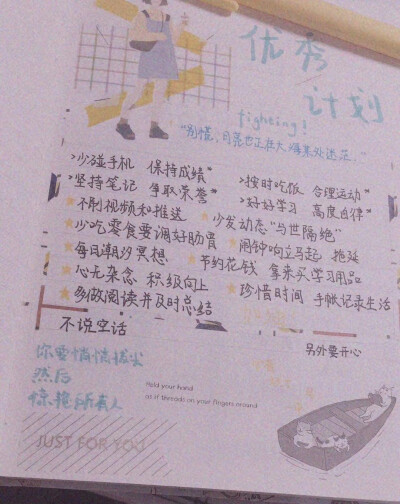 优秀
计划
fighting!
“别慌,月亮也正在大海某处迷茫。”
>少碰手机 保持成绩*
>坚持笔记 争取荣誉*
>按时吃饭 合理运动*
>好好学习 高度自律*
★不刷视频和推送 ★少发动态“与世隔绝”
★少吃零食要调好肠胃 ★闹钟响立马起 拖延
★每日潮汐冥想 ★节约花钱 拿来买学习用品
★心无杂念 积极向上 ★珍惜时间 手帐记录生活
★多做阅读并及时总结
不说空话
另外要开心
你要悄悄拔尖
然后
惊艳所有人
Hold your hand
as if threads on your fingers around
JUST FOR YOU